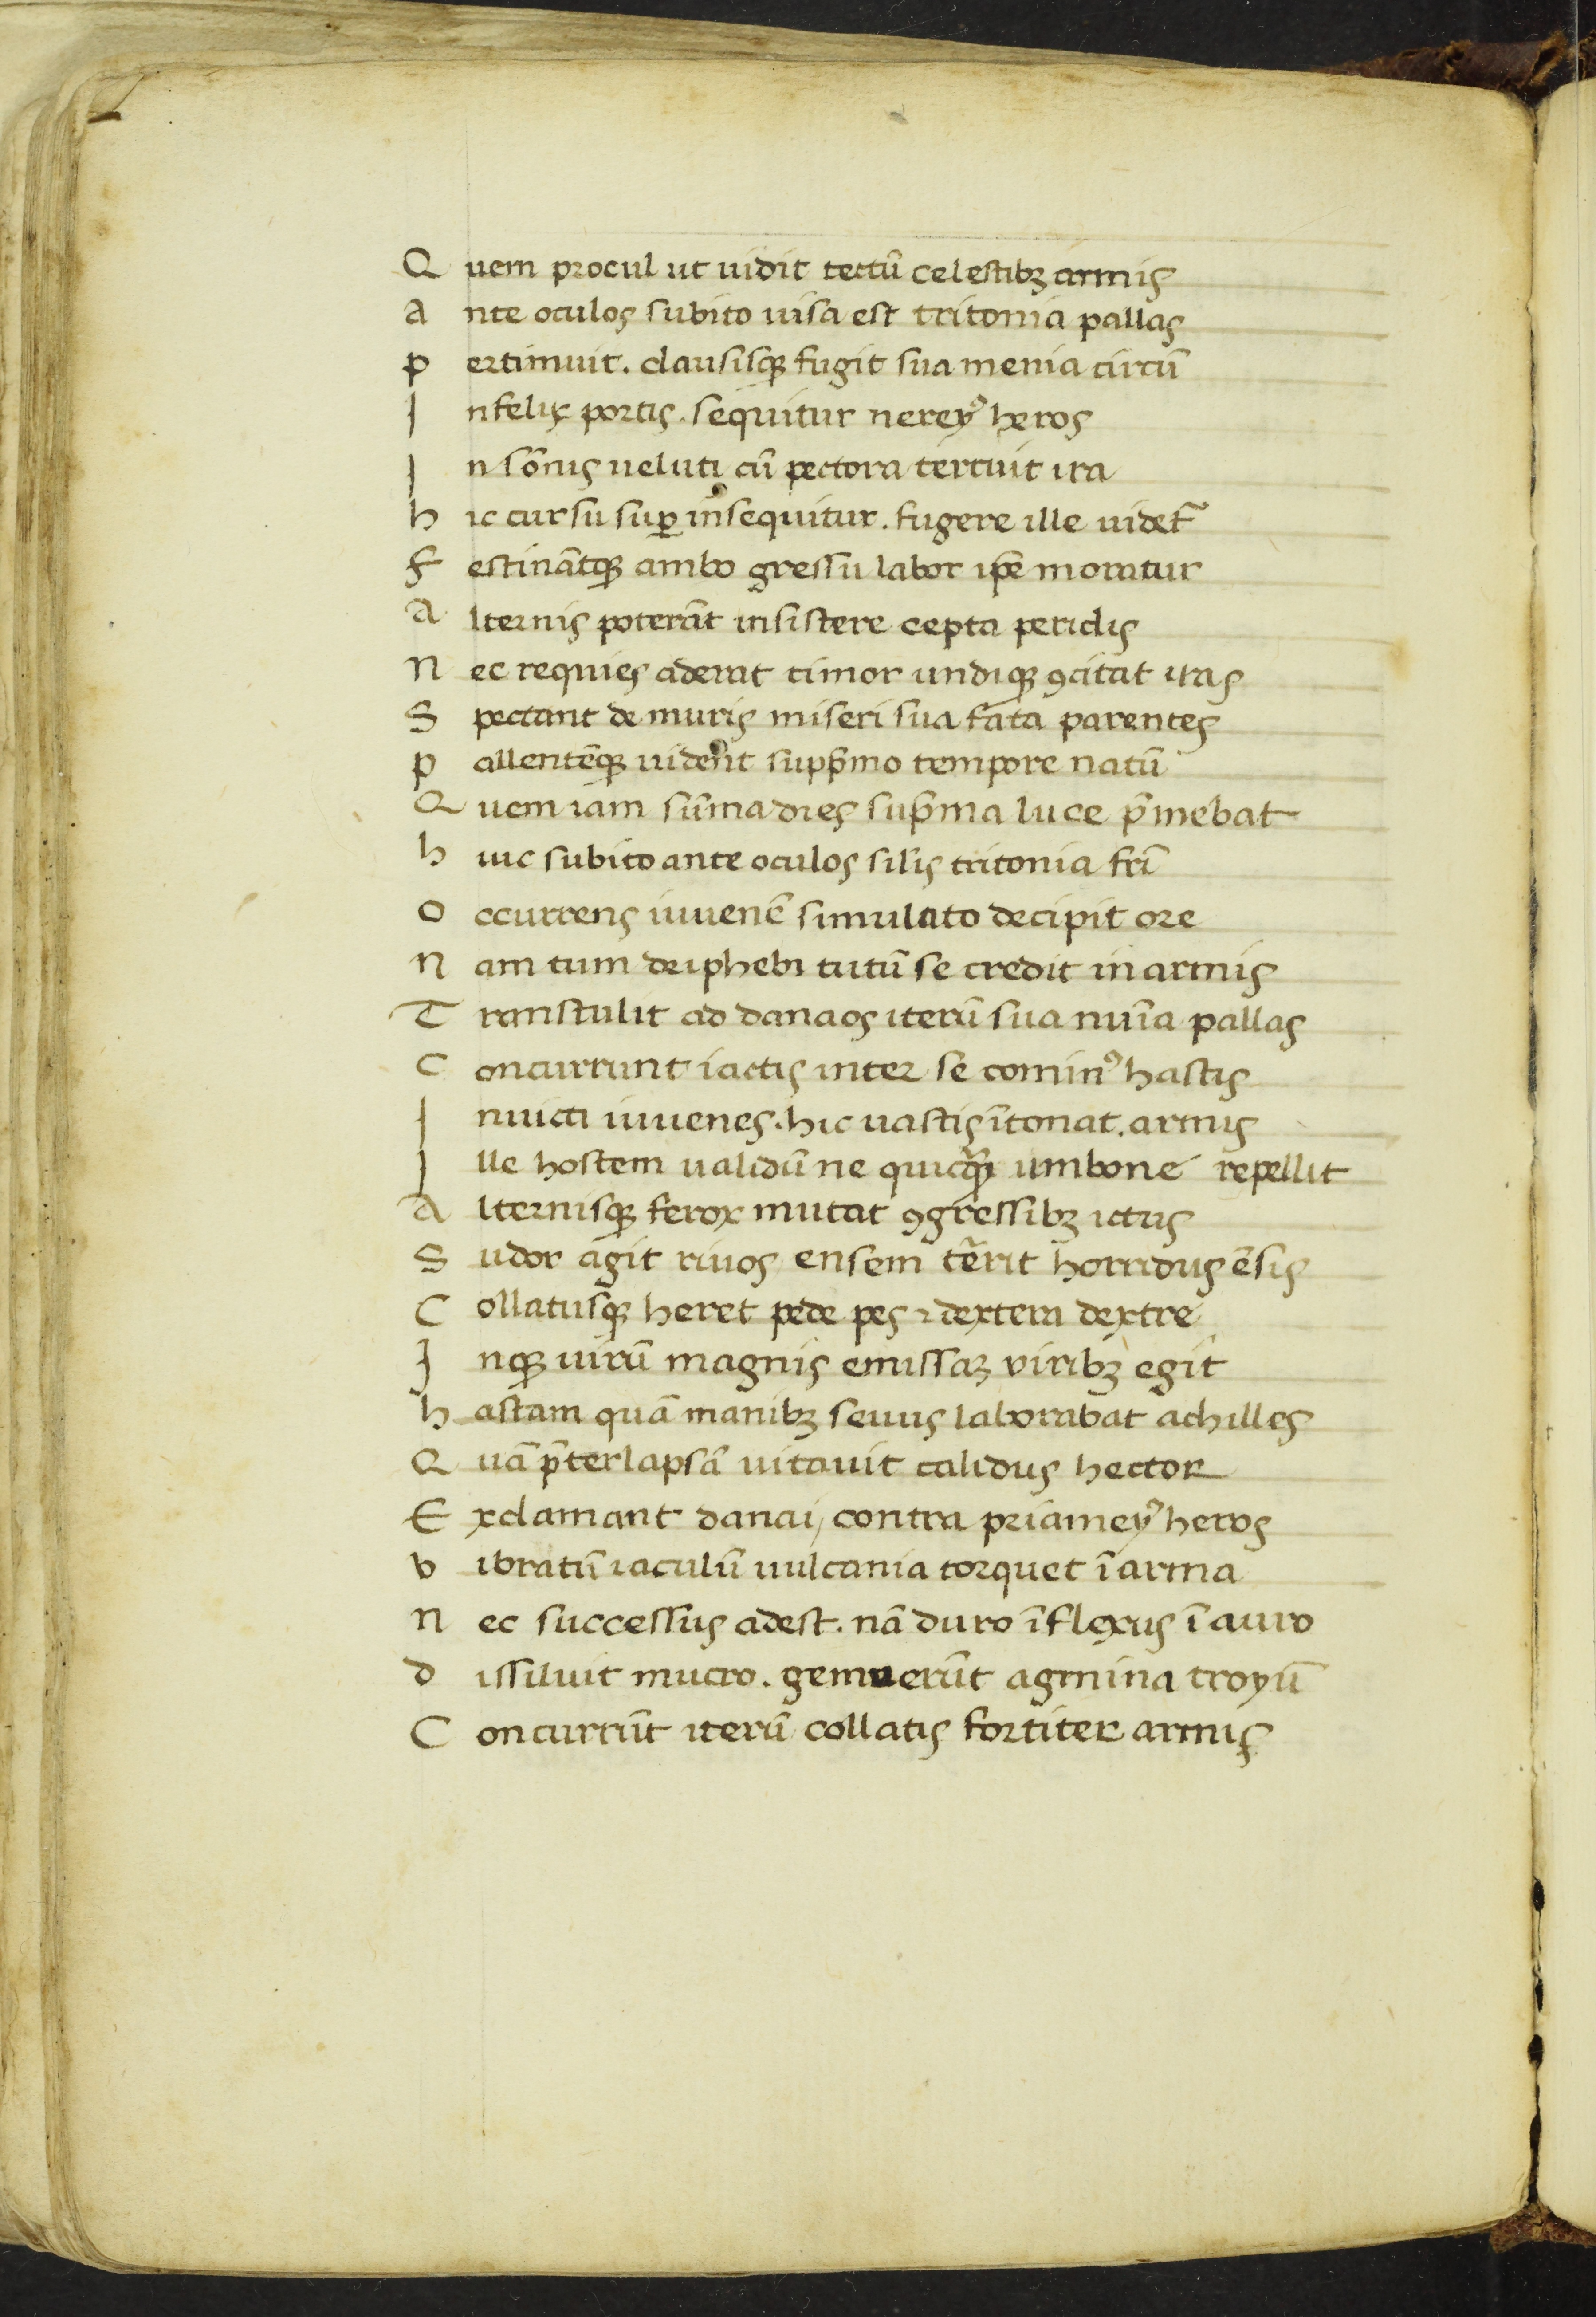 Q uem procul ut uidit tectū celestibꝫ armis
a nte oculos subito uisa est tritonia pallas
p ertimuit. clausisqꝫ fugit sua menia circū
I nfelix portis. sequitur nereyꝰ heros
I n som̄is ueluti cū pectora terruit ira
h ic cursu suꝑ insequitur. fugere ille uidet᷑
F estinātqꝫ ambo gressu labor ip̄e moratur
A lternis poterāt insistere cepta periclis
N ec requies aderat timor undiqꝫ ꝯcitat iras
S pectant de muris miseri sua fata parentes
p allentēqꝫ uident supp̄mo tempore natū
Q uem iam sūma dies sup̄ma luce p̄mebat
h uic subito ante oculos sil̄is tritonia fr̄i
O ccurrens iuuenē simulato decipit ore
N am tum deiphebi tutū se credit in armis
T ranstulit ad danaos iterū sua nuīa pallas
C oncurrunt iactis inter se cominꝰ hastis
I nuicti iuuenes. hic uastis ītonat. armis
I lle hostem ualidū ne quicꝗ̄ umbone repellit
A lternisqꝫ ferox mutat ꝯgressibꝫ ictus
S udor agit riuos ensem t̄erit horridus ēsis
C ollatusqꝫ heret pede pes ⁊ dextera dextre
I nqꝫ uirū magnis emissaꝫ viribꝫ egit
h astam quā manibꝫ seuus laborabat achilles
Q uā p̄terlapsā uitauit calidus hector
E xclamant danai, contra priameyꝰ heros
v ibratū iaculū uulcania torquet ī arma
N ec successus adest. nā duro īflexus ī auro
d issiluit mucro. gemuerūt agmina troyū
C oncurrūt iterū collatis fortiter armis